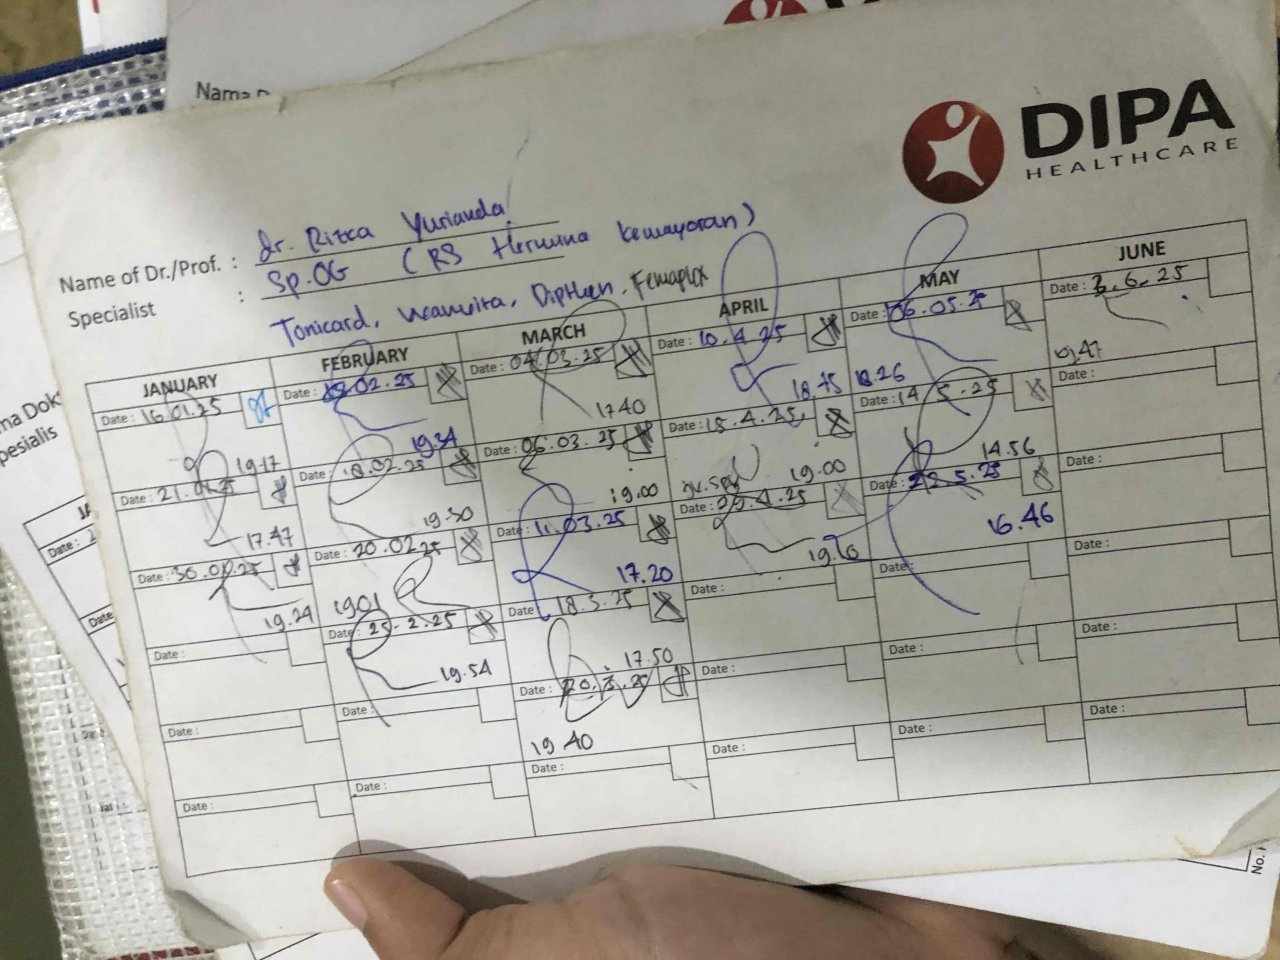 Nama
DIPA
HEALTHCARE
Name of Dr./Prof. : dr. Rizca Yurianda
Specialist : Sp.OG (RS Hermina Kemayoran)
Tonicard, Dipthen, Femaplex
JANUARY
Date : 16.01.25
19.17
Date : 21.01.25
17.47
Date : 30.01.25
19.24
Date :
Date :
Date :
FEBRUARY
Date : 02.25
19.34
Date : 18.02.25
19.30
Date : 20.02.25
19.01
Date : 25.2.25
19.54
Date :
Date :
MARCH
Date : 04.03.25
17.40
Date : 06.03.25
19.00
Date : 11.03.25
17.20
Date : 18.3.25
17.50
Date : 20.3.25
19.40
Date :
APRIL
Date : 10.4.25
18.45
Date : 15.4.25
19.00
Date : .4.25
19.10
Date :
Date :
Date :
MAY
Date : 06.05.25
18.26
Date : 14.5.25
14.56
Date : 22.5.25
16.46
Date :
Date :
Date :
JUNE
Date : 3.6.25
19.47
Date :
Date :
Date :
Date :
Date :
ma Dok
pesialis
Date :
Date
No.